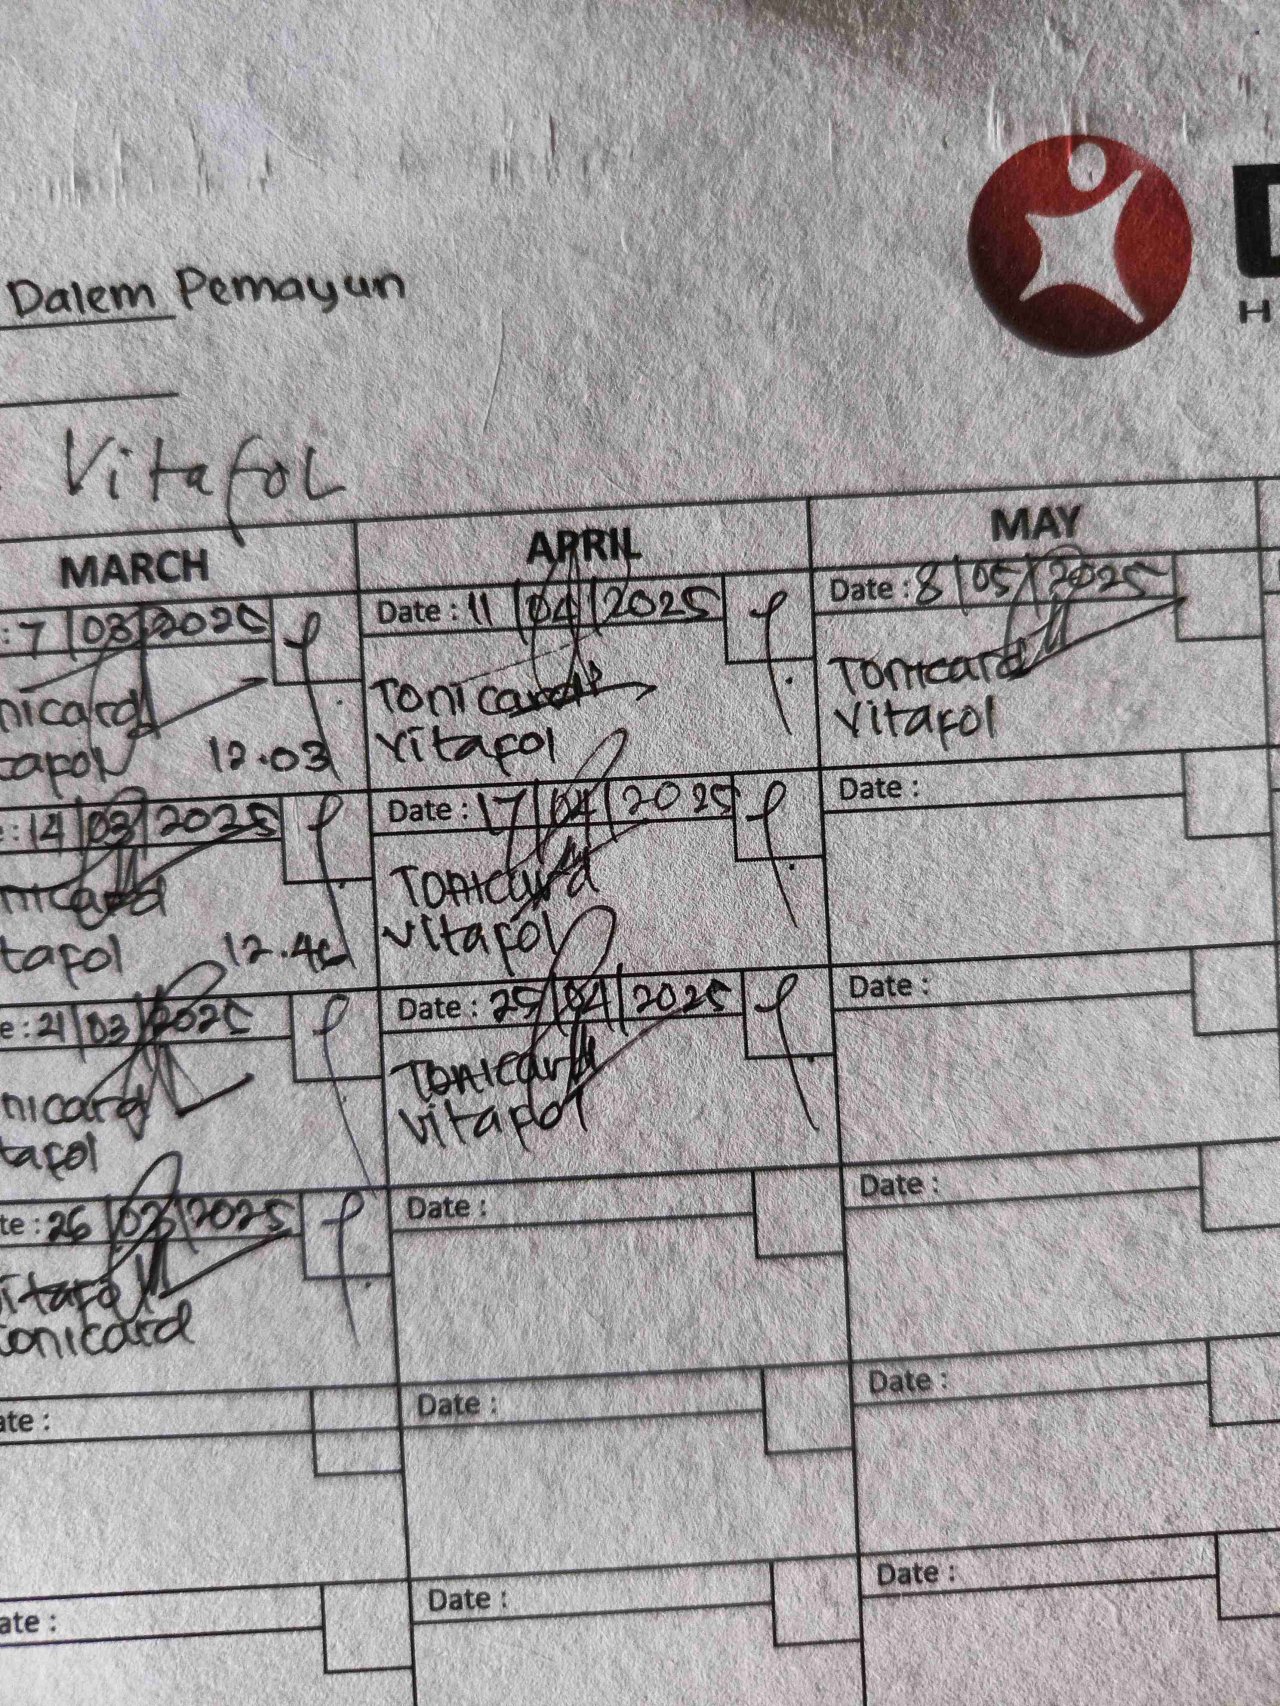 Dalem Pemayun
Vitafol
MARCH
APRIL
MAY
: 7/03/2025
Date : 11/04/2025
Date : 8/05/2025
nicard
tafol 12.03
Tonicard
vitafol
Tonicard
vitafol
: 14/03/2025
Date : 17/04/2025
Date :
nicard
tafol
Tonicard
vitafol
e : 21/03/2025
Date : 25/04/2025
Date :
nicard
tafol
Tonicard
vitafol
te : 26/03/2025
Date :
Date :
itafol
tonicard
ate :
Date :
Date :
ate :
Date :
Date :